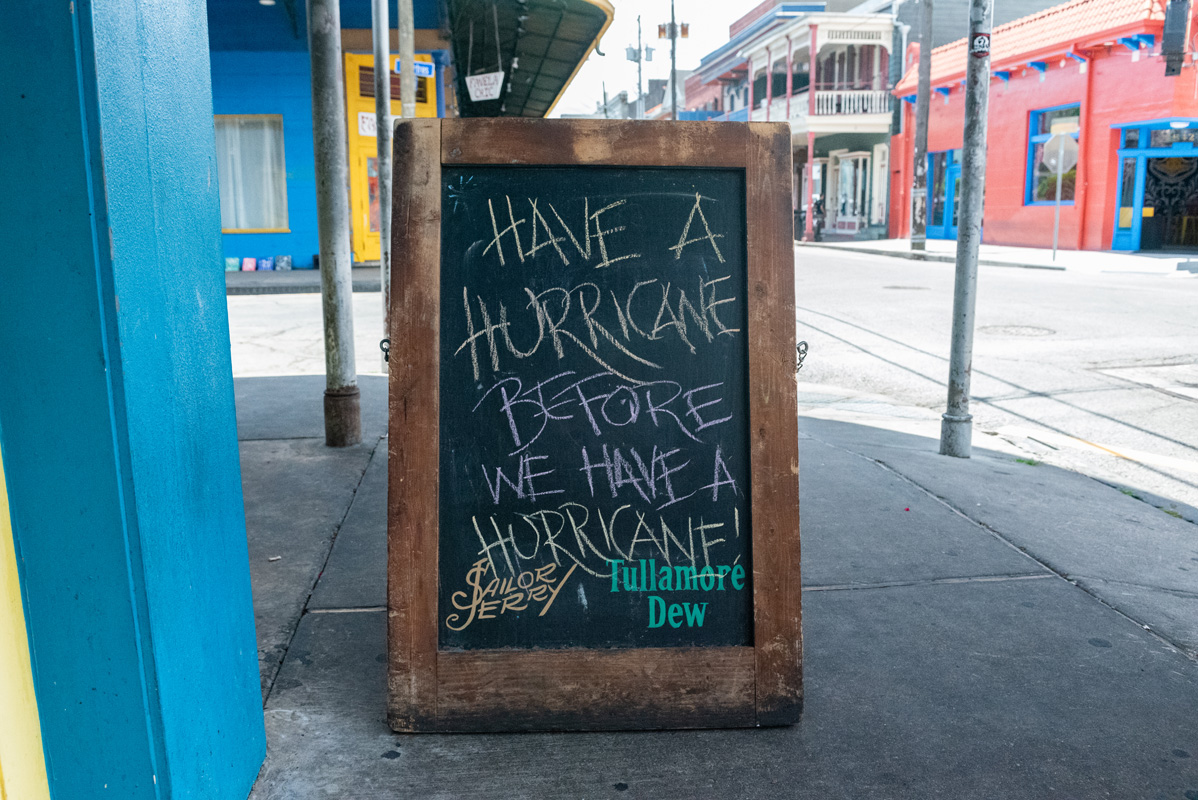 HAVE A
HURRICANE
BEFORE
WE HAVE A
HURRICANE!
SAILOR
JERRY
Tullamore
Dew